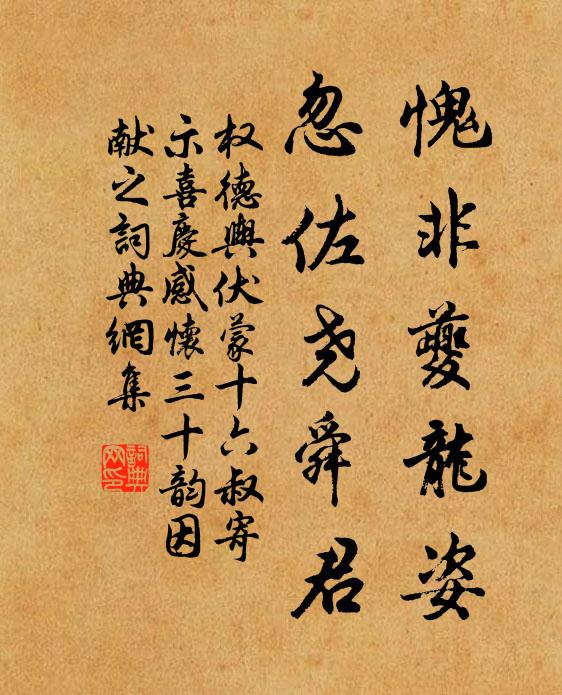 愧非夔龍姿
忽佐尧舜君
权德輿伏蒙十六叔寄
示喜慶感懷三十韵因
献之詞典網集
詞典
网印